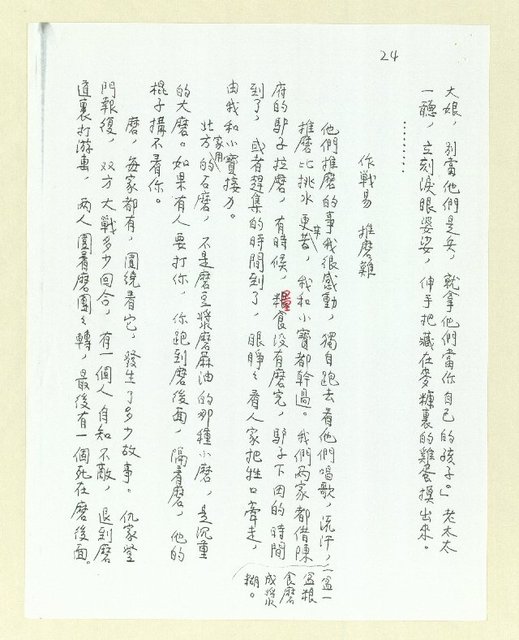 24
大娘，別當他們是兵，就拿他們當你自己的孩子。」老太太
一聽，立刻淚眼婆娑，伸手把藏在麥糠裏的雞蛋摸出來。
………
作戰易 推磨難
他們推磨的事我很感動，獨自跑去看他們唱歌，流汗，一盆一
盆粮
食磨
成漿
糊。
推磨比挑水更苦，我和小寶都幹過。我們兩家都借陳
府的驢子拉磨，有時候，糧食沒有磨完，驢子下田的時間
到了，或者趕集的時間到了，眼睜々看人家把牲口牽走，
由我和小寶接力。
北方家用的石磨，不是磨豆漿磨麻油的那種小磨，是沉重
的大磨。如果有人要打你，你跑到磨後面，隔着磨，他的
棍子搆不着你。
磨，每家都有，圍繞着它，發生了多少故事。仇家登
門報復，双方大戰多少回合，有一個人自知不敵，退到磨
道裏打游擊，兩人圍着磨團々轉，最後有一個死在磨後面。